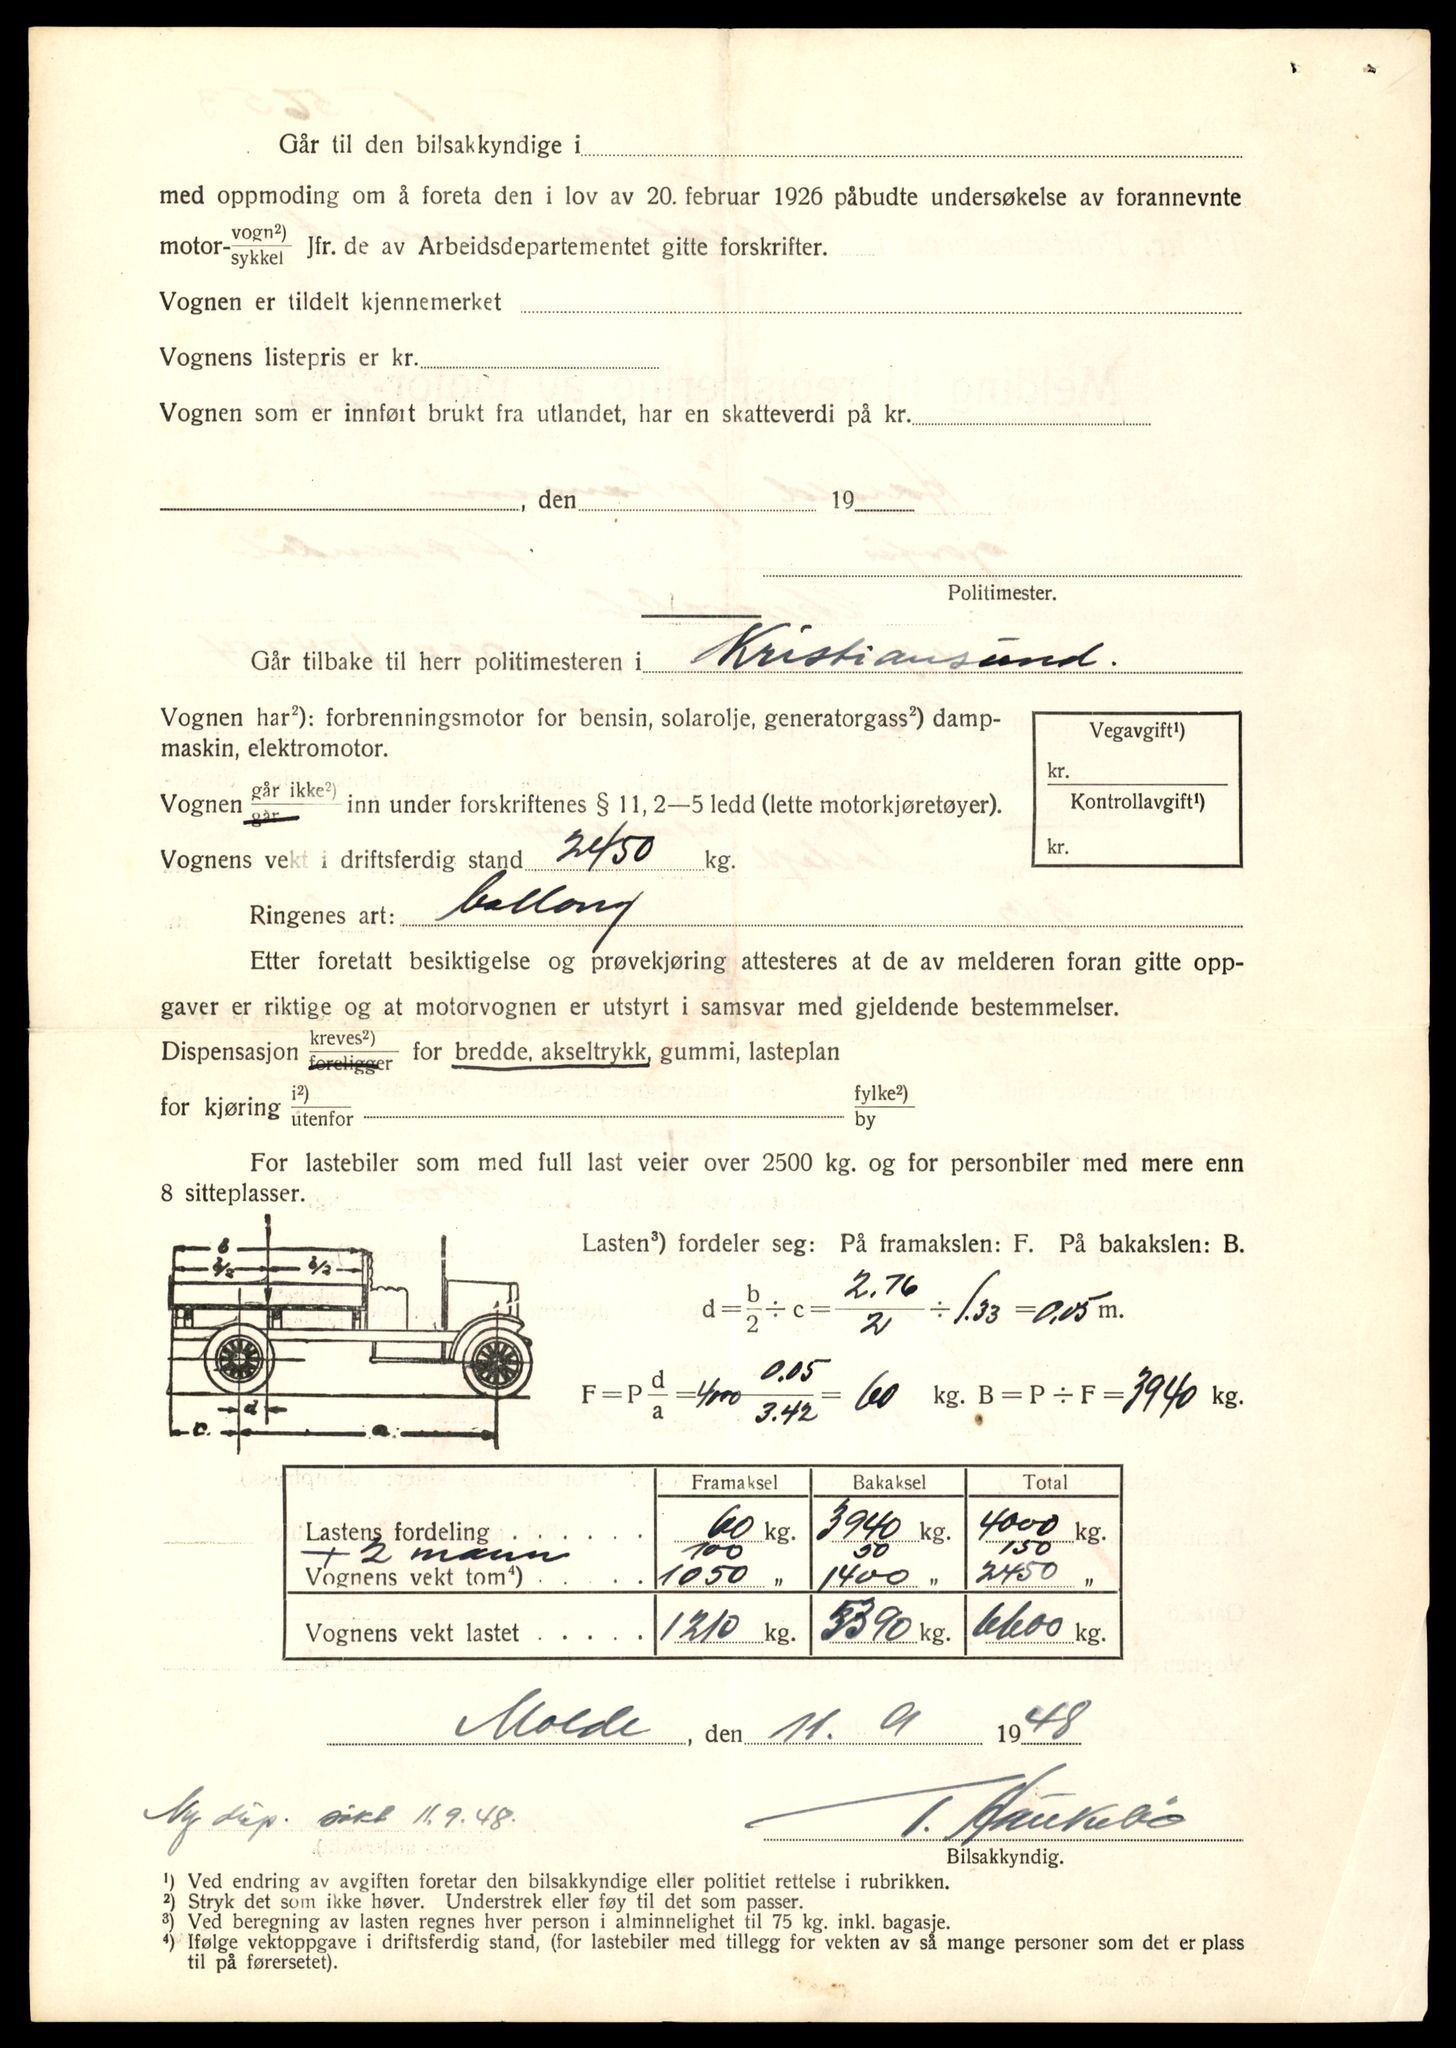 Går til den bilsakkyndige i
med oppmoding om å foreta den i lov av 20. februar 1926 påbudte undersøkelse av forannevnte
motor-vogn²)/sykkel Jfr. de av Arbeidsdepartementet gitte forskrifter.
Vognen er tildelt kjennemerket
Vognens listepris er kr.
Vognen som er innført brukt fra utlandet, har en skatteverdi på kr.
, den 19
Politimester.
Går tilbake til herr politimesteren i Kristiansund.
Vognen har²): forbrenningsmotor for bensin, solarolje, generatorgass²) damp-
maskin, elektromotor.
Vegavgift¹)
kr.
Kontrollavgift¹)
kr.
Vognen går ikke²)/går inn under forskriftenes § 11, 2—5 ledd (lette motorkjøretøyer).
Vognens vekt i driftsferdig stand 2450 kg.
Ringenes art: ballong
Etter foretatt besiktigelse og prøvekjøring attesteres at de av melderen foran gitte opp-
gaver er riktige og at motorvognen er utstyrt i samsvar med gjeldende bestemmelser.
Dispensasjon kreves²)/foreligger for bredde, akseltrykk, gummi, lasteplan
for kjøring i²)/utenfor fylke²)/by
For lastebiler som med full last veier over 2500 kg. og for personbiler med mere enn
8 sitteplasser.
b
b/2 b/2
c. d a
Lasten³) fordeler seg: På framakslen: F. På bakakslen: B.
d = b/2 ÷ c = 2.76/2 ÷ 1.33 = 0,05 m.
F = P d/a = 4000 0.05/3.42 = 60 kg. B = P ÷ F = 3940 kg.
Framaksel Bakaksel Total
Lastens fordeling . . . . . . 60 kg. 3940 kg. 4000 kg.
+ 2 mann 100 50 150
Vognens vekt tom⁴) . . . . . 1050 „ 1400 „ 2450 „
Vognens vekt lastet . . . . . 1210 kg. 5390 kg. 6600 kg.
Molde, den 11. 9 1948
Ny disp. søkt 11.9.48.
T. Haukebø
Bilsakkyndig.
¹) Ved endring av avgiften foretar den bilsakkyndige eller politiet rettelse i rubrikken.
²) Stryk det som ikke høver. Understrek eller føy til det som passer.
³) Ved beregning av lasten regnes hver person i alminnelighet til 75 kg. inkl. bagasje.
⁴) Ifølge vektoppgave i driftsferdig stand, (for lastebiler med tillegg for vekten av så mange personer som det er plass
til på førersetet).